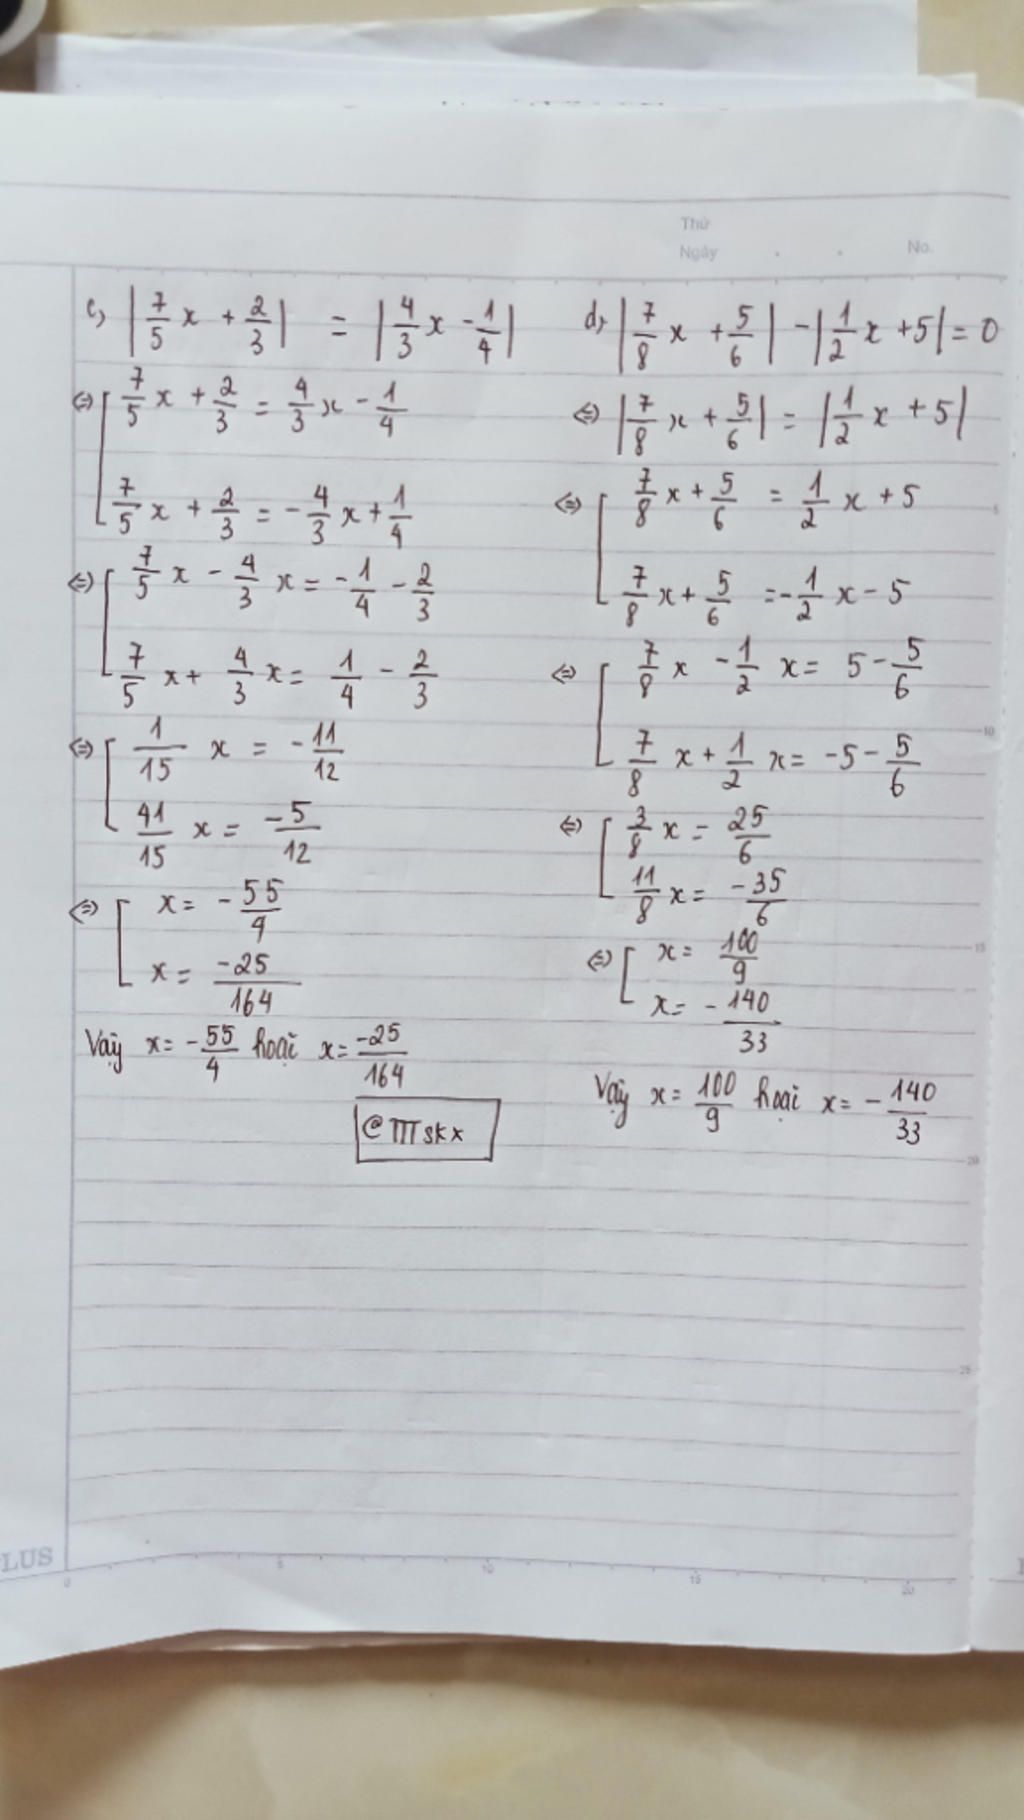 Thứ
Ngày . . No.
c, |7/5 x + 2/3| = |4/3 x - 1/4|
⇔ [ 7/5 x + 2/3 = 4/3 x - 1/4
7/5 x + 2/3 = - 4/3 x + 1/4
⇔ [ 7/5 x - 4/3 x = - 1/4 - 2/3
7/5 x + 4/3 x = 1/4 - 2/3
⇔ [ 1/15 x = - 11/12
41/15 x = -5/12
⇔ [ x = - 55/4
x = -25/164
Vậy x = - 55/4 hoặc x = -25/164
@TTTskx
d, |7/8 x + 5/6| - |1/2 x + 5| = 0
⇔ |7/8 x + 5/6| = |1/2 x + 5|
⇔ [ 7/8 x + 5/6 = 1/2 x + 5
7/8 x + 5/6 = - 1/2 x - 5
⇔ [ 7/8 x - 1/2 x = 5 - 5/6
7/8 x + 1/2 x = -5 - 5/6
⇔ [ 3/8 x = 25/6
11/8 x = -35/6
⇔ [ x = 100/9
x = - 140/33
Vậy x = 100/9 hoặc x = - 140/33
5
10
15
20
25
LUS
0 5 10 15 20